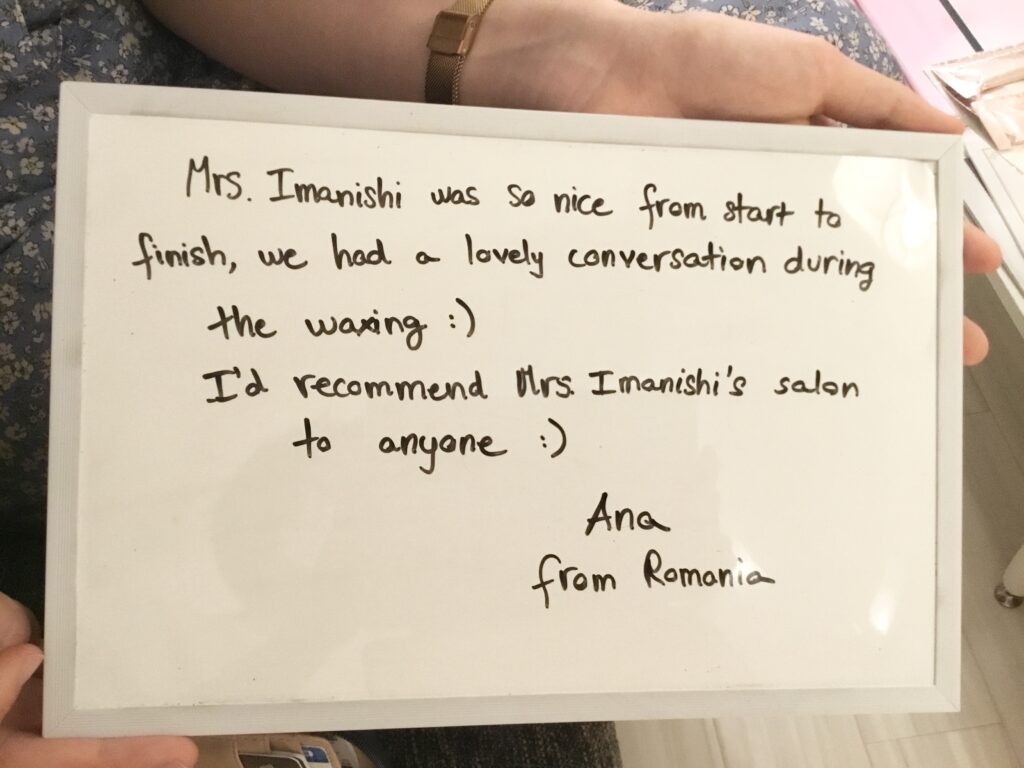 Mrs. Imanishi was so nice from start to
finish, we had a lovely conversation during
the waxing :)
I'd recommend Mrs. Imanishi's salon
to anyone :)
Ana
from Romania